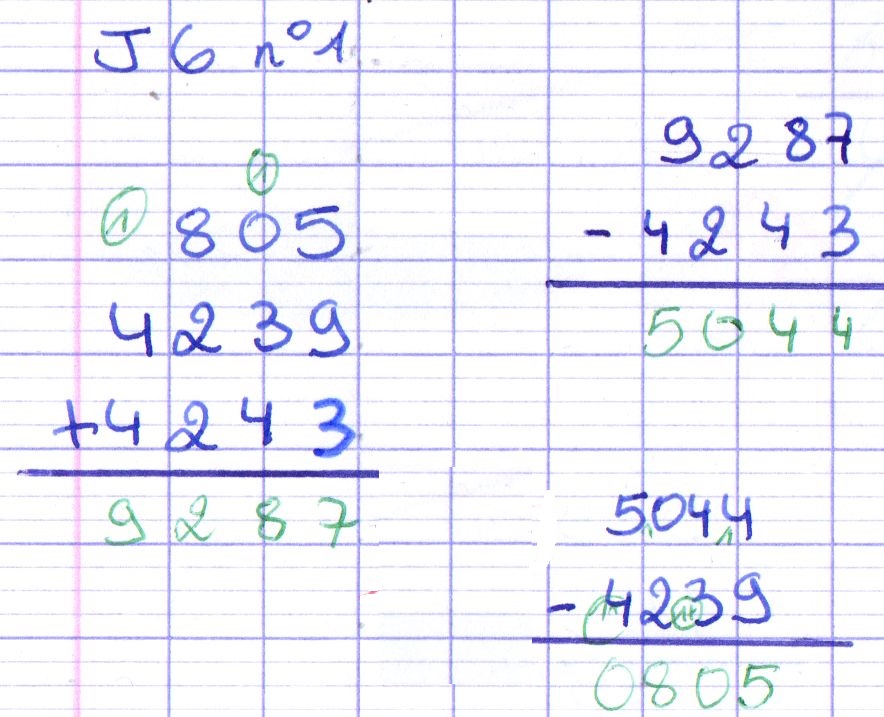 J6 n°1
1 1
805
4239
+4243
9287
9287
- 4243
5044
5044
1 1
- 1+ 4 2 1+ 3 9
0805